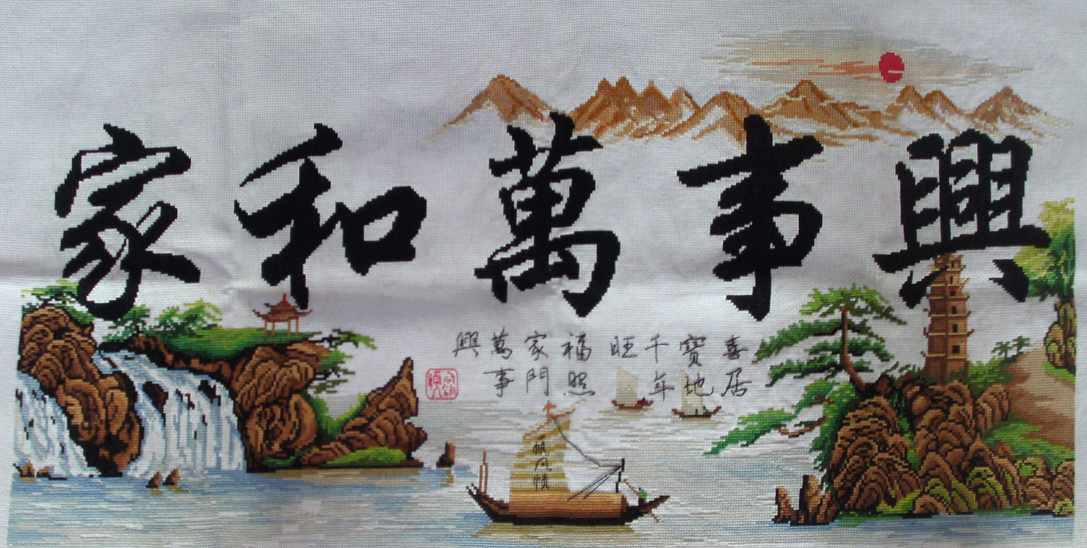 家和萬事興
喜居
寶地
千年
旺
福照
家門
萬事
興
帆风顺